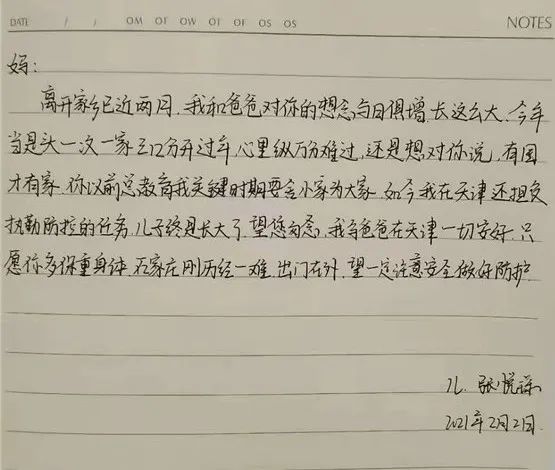 DATE / / OM OT OW OT OF OS OS NOTES
妈:
离开家乡已近两月,我和爸爸对你的想念与日俱增,长这么大,今年
当是头一次一家三口分开过年,心里纵万分难过,还是想对你说,有国
才有家,你以前总教育我关键时期要舍小家为大家,如今我在天津还担负
执勤防控的任务,儿子终是长大了,望您勿念,我与爸爸在天津一切安好,只
愿你多保重身体,石家庄刚历经一难,出门在外,望一定注意安全做好防护.
儿.张悦
2021年2月2日